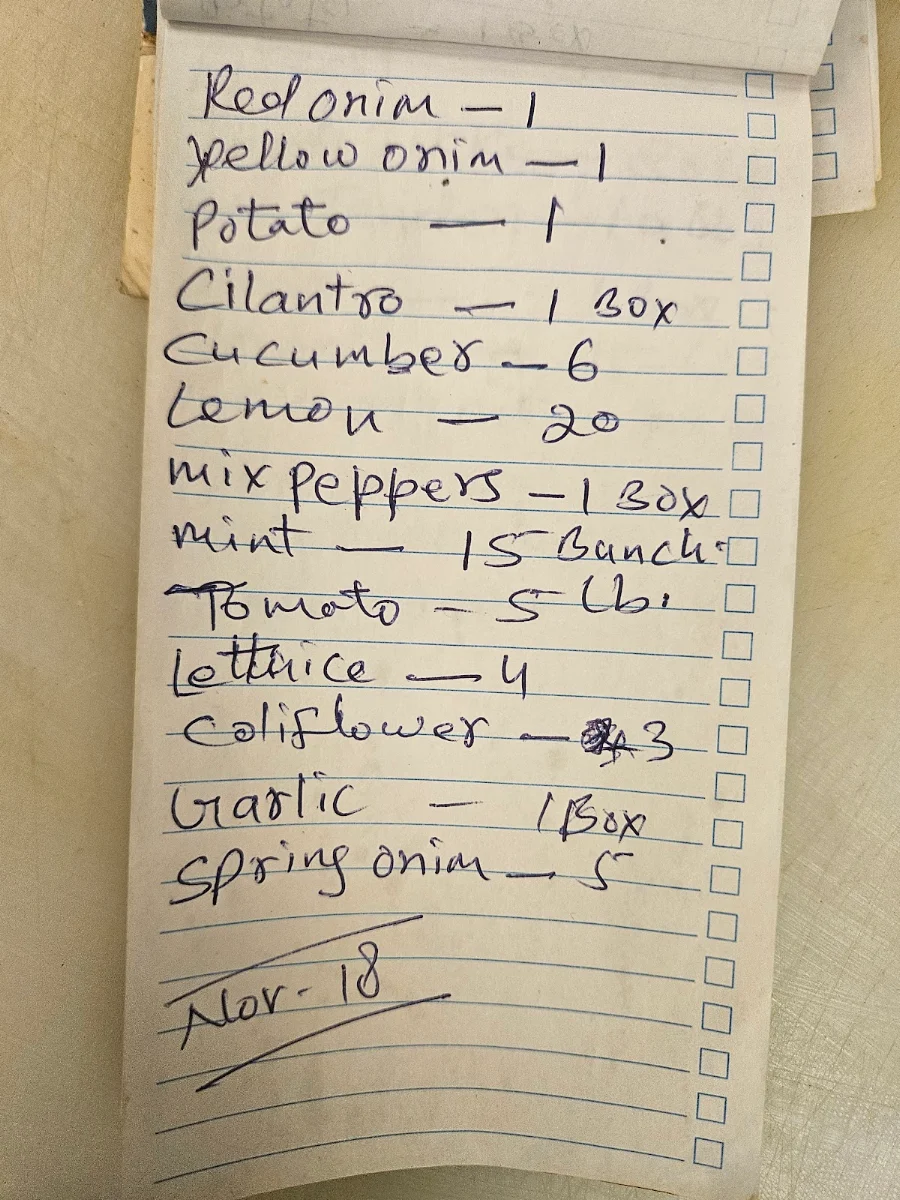 Red onion — 1
yellow onion — 1
Potato — 1
Cilantro — 1 Box
Cucumber — 6
Lemon — 20
mix peppers — 1 Box
mint — 15 Banch.
Tomato — 5 Lb.
Lettuice — 4
Coliflower — 3
Garlic — 1 Box
Spring onion — 5
Nov - 18